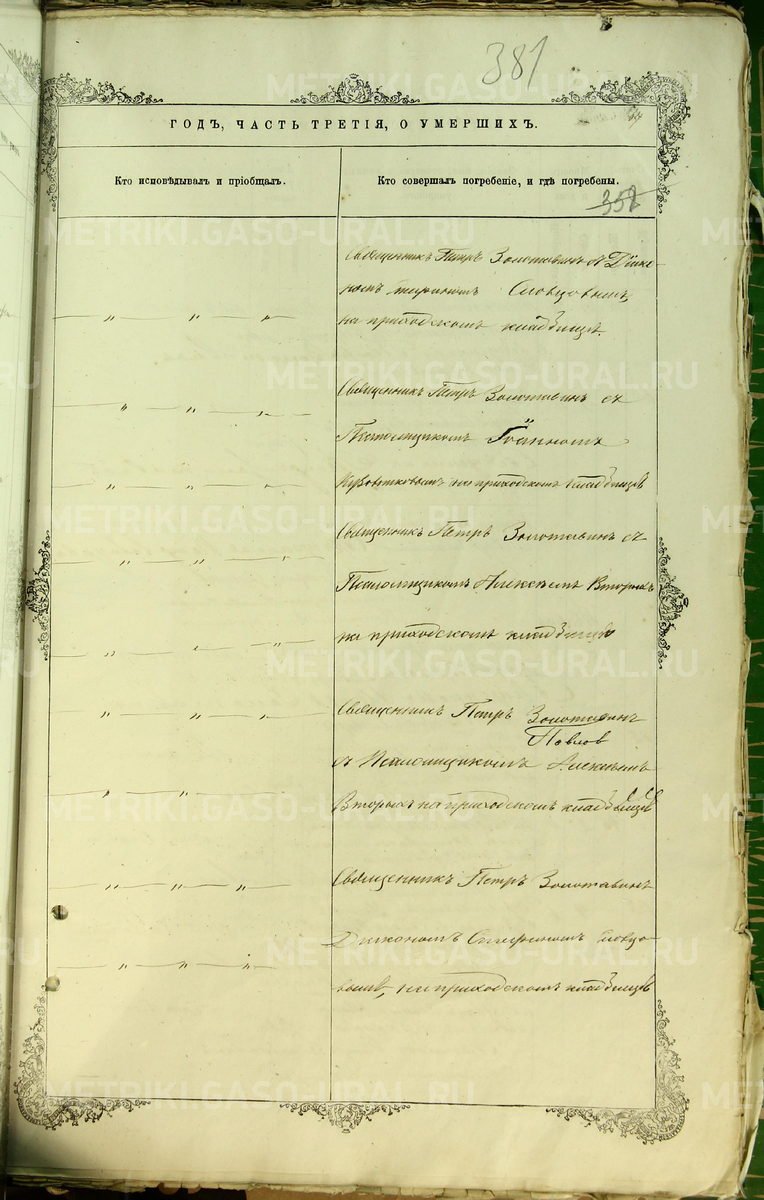 381
ГОДЪ, ЧАСТЬ ТРЕТІЯ, О УМЕРШИХЪ.
Кто исповѣдывалъ и пріобщалъ.
Кто совершалъ погребеніе, и гдѣ погребены.
352
Священникъ Петръ Золотавинъ съ Діако-
номъ Словцовымъ
на приходскомъ кладбищѣ.
Священникъ Петръ Золотавинъ съ
Псаломщикомъ Іоанномъ
на приходскомъ кладбищѣ
Священникъ Петръ Золотавинъ съ
Псаломщикомъ Алексѣемъ Вторыхъ
на приходскомъ кладбищѣ
Священникъ Петръ Золотавинъ
Павлов
съ Псаломщикомъ Алексѣемъ
Вторыхъ на приходскомъ кладбищѣ
Священникъ Петръ Золотавинъ
Діакономъ Стефаномъ Словцо-
вымъ, на приходскомъ кладбищѣ
METRIKI.GASO-URAL.RU